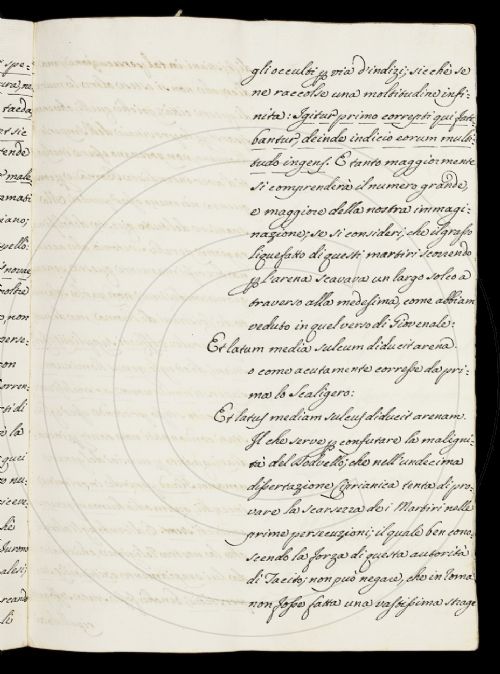 gli occulti p via d'indizi; sicchè se
ne raccolse una moltitudine infi-
nita: Igitur primo correpti qui fate-
bantur, deinde indicio eorum multi-
tudo ingens. E tanto maggiormente
si comprenderà il numero grande,
e maggiore della nostra immagi-
nazione, se si consideri, che il grasso
liquefatto di questi martiri scorrendo
p l'arena scavava un largo solco a
traverso alla medesima, come abbiam
veduto in quel verso di Giovenale:
Et latum media sulcum diducit arena.
o come acutamente corresse da pri-
ma lo Scaligero:
Et latus mediam sulcus diducit arenam.
Il che serve p confutare la maligni-
tà del Dodvello, che nell'undecima
dissertazione Ciprianica tenta di pro-
vare la scarsezza de i Martiri nelle
prime persecuzioni; il quale ben cono-
scendo la forza di questa autorità
di Tacito, non può negare, che in Roma
non fosse fatta una vastissima strage